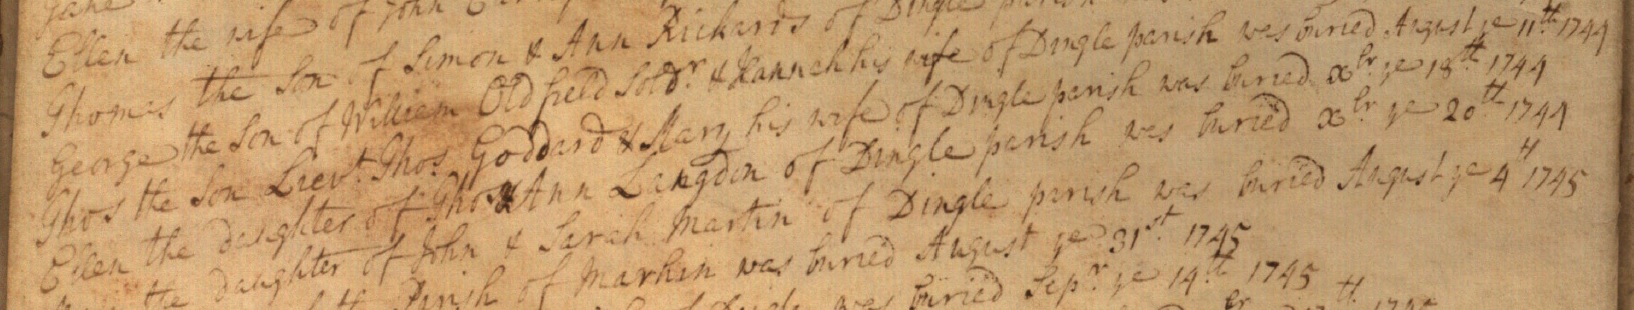 Jane
Ellen the wife of John
Thomas the Son of Simon & Ann Rickards of Dingle parish
George the Son of William Oldfield Soldr. & Hannah his wife of Dingle parish was buried August ye 11th 1744
Thos the Son Lievt. Thos. Goddard & Mary his wife of Dingle parish was buried xbr ye 18th 1744
Ellen the daughter of Thos & Ann Langdon of Dingle parish was buried xbr ye 20th 1744
the daughter of John & Sarah Martin of Dingle parish was buried August ye 4th 1745
Parish of Markin was buried August ye 31st 1745
was buried Sepr ye 14th 1745